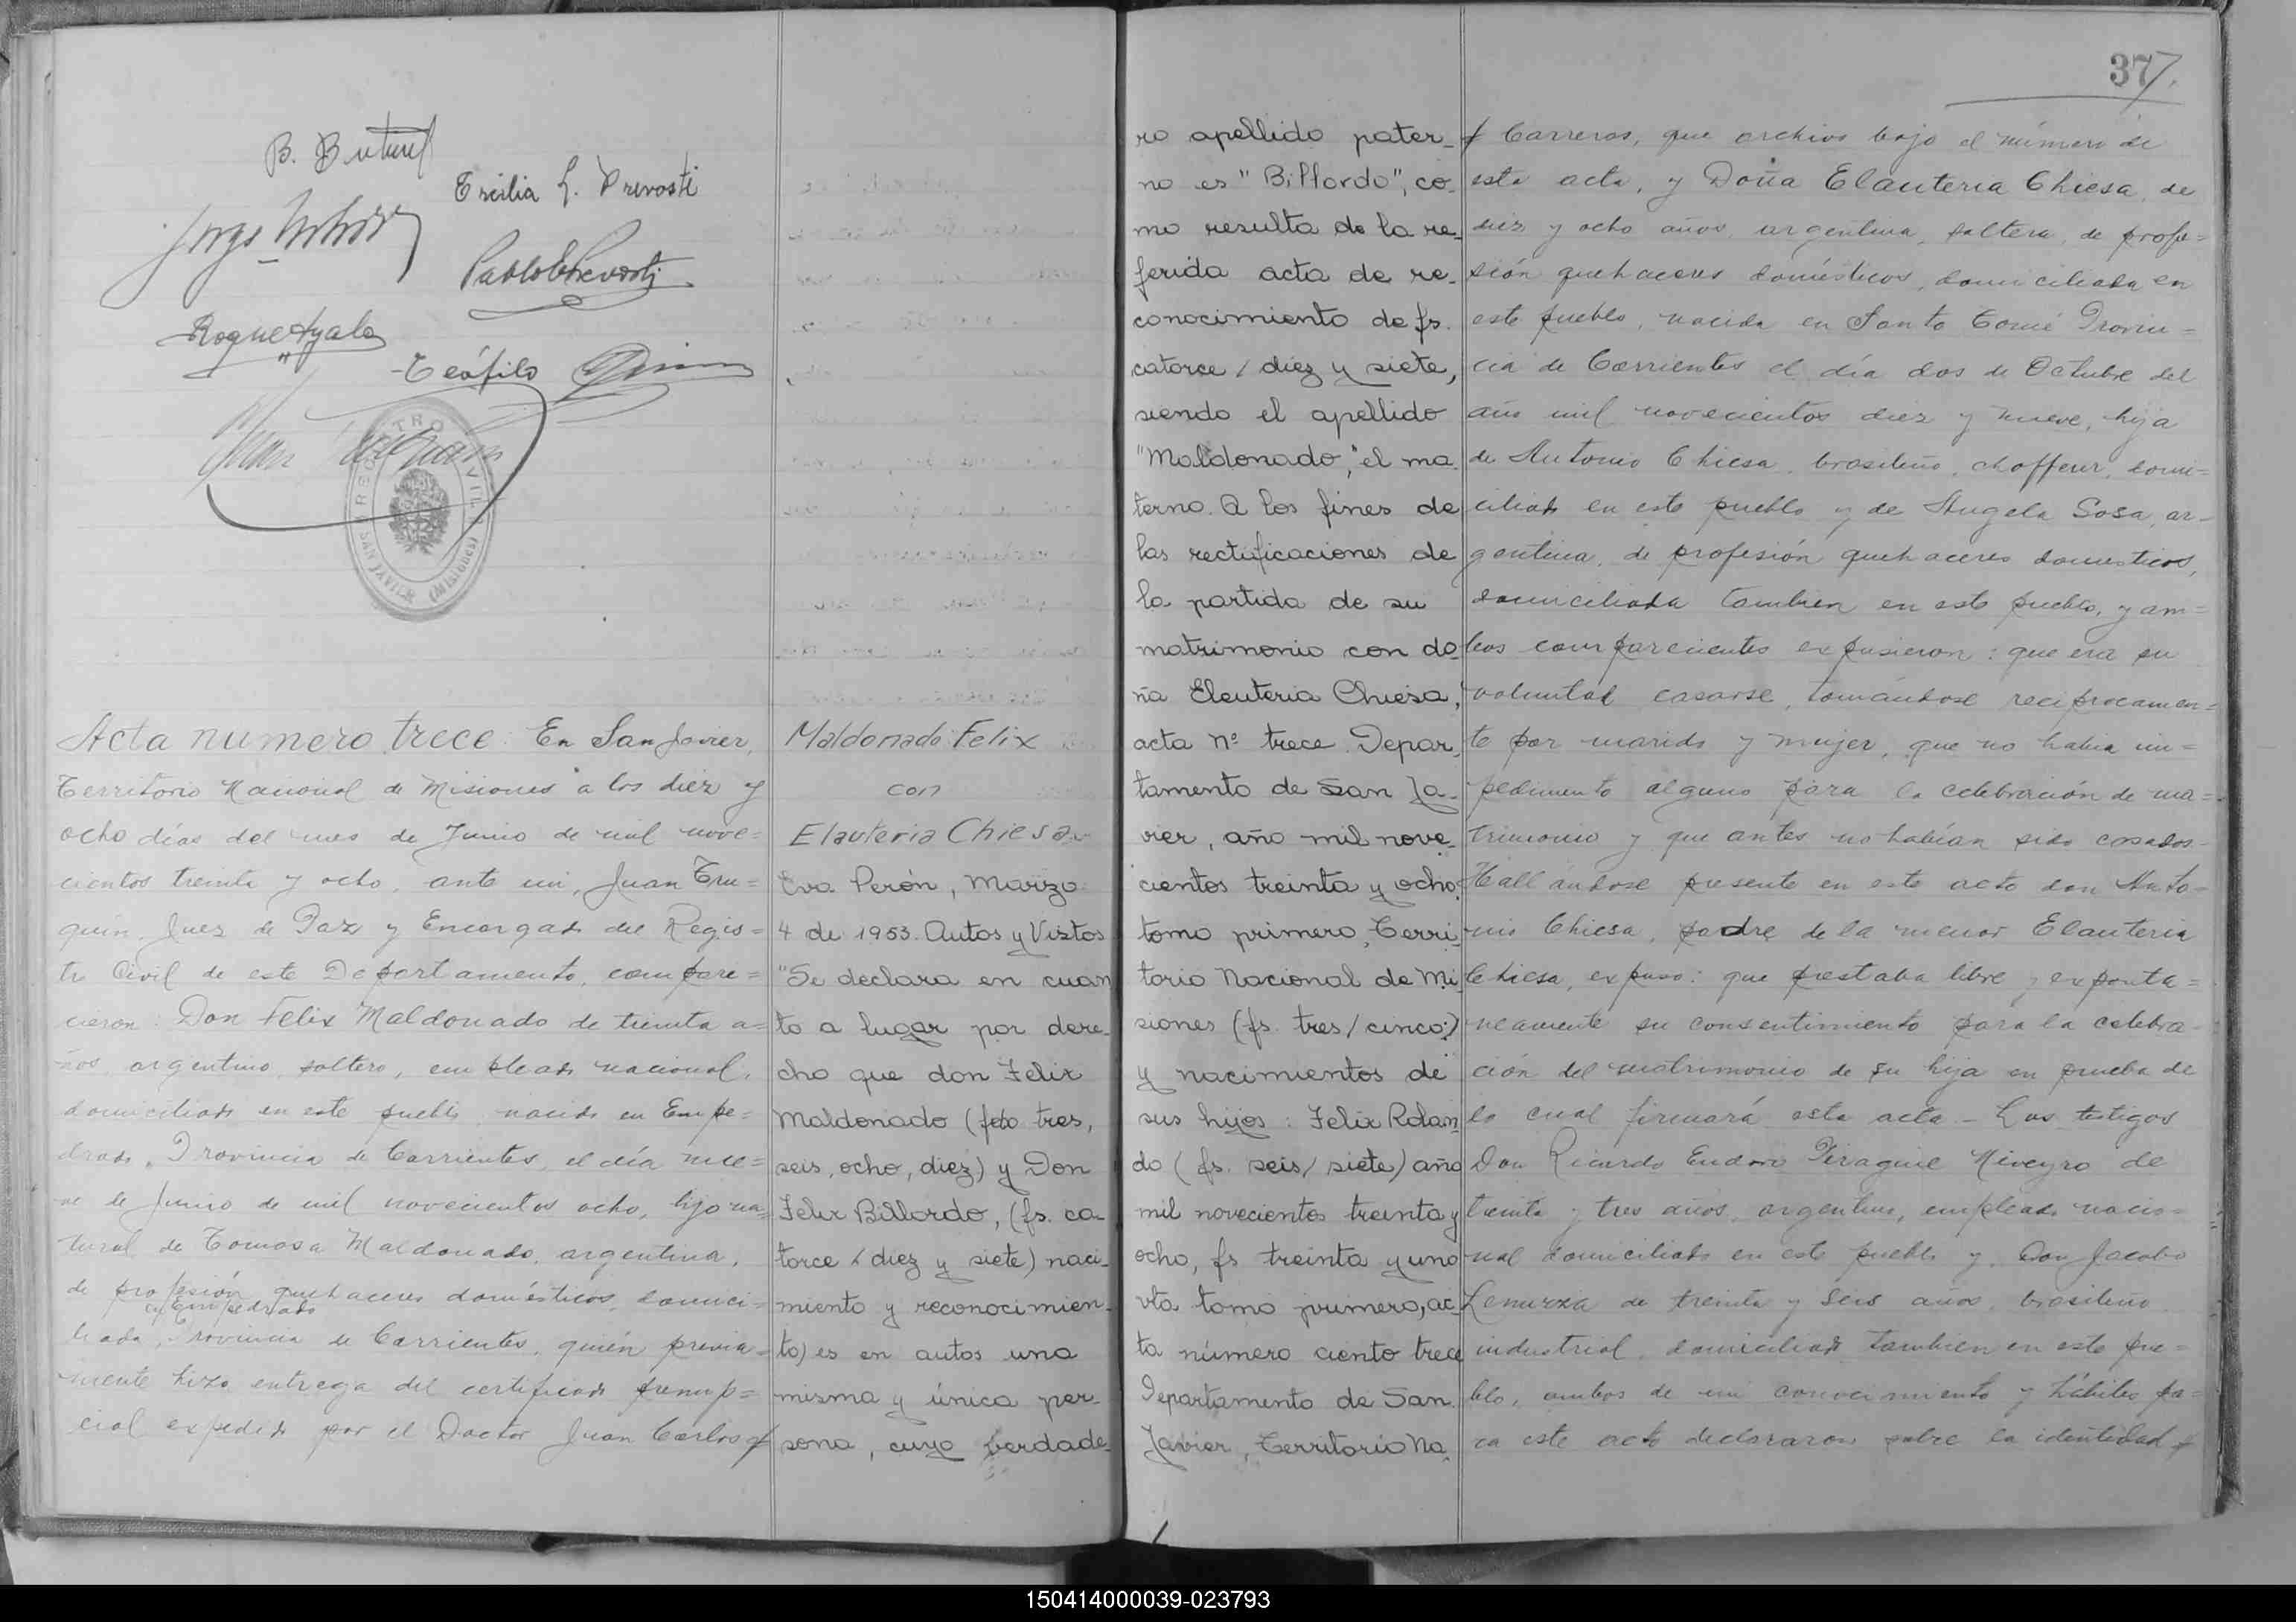 B. Buturf
Ercilia L. Prevosti
Pablo Prevosti
Roque Ayala
Teófilo
REGISTRO CIVIL
SAN JAVIER (Misiones)
Acta numero trece. En San Javier,
Territorio Nacional de Misiones a los diez y
ocho días del mes de Junio de mil nove=
cientos treinta y ocho, ante mi, Juan Tru=
quin, Juez de Paz y Encargado del Regis=
tro Civil de este Departamento, compare=
cieron: Don Felix Maldonado de treinta a=
ños, argentino, soltero, empleado nacional,
domiciliado en este pueblo, nacido en Empe=
drado, Provincia de Corrientes, el día nue=
ve de Junio de mil novecientos ocho, hijo na=
tural de Tomasa Maldonado, argentina,
de profesión quehaceres domésticos, domici=
en Empedrado
liada, Provincia de Corrientes, quién previa=
mente hizo entrega del certificado prenup=
cial expedido por el Doctor Juan Carlos
Maldonado Felix
con
Elauteria Chiesa
Eva Perón, Marzo
4 de 1953. Autos y Vistos
"Se declara en cuan
to a lugar por dere-
cho que don Felix
Maldonado (fs tres,
seis, ocho, diez) y Don
Felix Billordo, (fs. ca-
torce / diez y siete) naci-
miento y reconocimien-
to) es en autos una
misma y única per-
sona, cuyo verdade-
37.
ro apellido pater-
no es "Billordo", co-
mo resulta de la re-
ferida acta de re-
conocimiento de fs.
catorce / diez y siete,
siendo el apellido
"Maldonado", el ma
terno. A los fines de
las rectificaciones de
la partida de su
matrimonio con do-
ña Eleuteria Chiesa,
acta nº trece Depar-
tamento de San Ja-
vier, año mil nove-
cientos treinta y ocho,
tomo primero, Terri-
torio Nacional de Mi-
siones (fs. tres/cinco:)
y nacimientos de
sus hijos: Felix Rolan-
do (fs. seis/siete) año
mil novecientos treinta y
ocho, fs treinta y uno
vta tomo primero, ac-
ta número ciento trece
Departamento de San
Javier, Territorio Na-
Carreras, que archivo bajo el número de
esta acta, y Doña Elauteria Chiesa, de
diez y ocho años, argentina, soltera, de profe=
sión quehaceres domésticos, domiciliada en
este pueblo, nacida en Santo Tomé Provin=
cia de Corrientes el día dos de Octubre del
año mil novecientos diez y nueve, hija
de Antonio Chiesa, brasileño, chofferer, domi=
ciliado en este pueblo y de Angela Sosa, ar-
gentina, de profesión quehaceres domesticos,
domiciliada tambien en este pueblo, y am=
bos comparecientes expusieron: que era su
voluntad casarse, tomándose reciprocamen=
te por marido y mujer, que no habia im=
pedimento alguno para la celebración de ma=
trimonio y que antes no habían sido casados-
Hallándose presente en este acto don Anto=
nio Chiesa, padre de la menor Elauteria
Chiesa, expuso: que prestaba libre y exponta=
neamente su consentimiento para la celebra-
ción del matrimonio de su hija en prueba de
lo cual firmará esta acta.- Los testigos
Don Ricardo Eudoro Piragine Niveyro de
treinta y tres años, argentino, empleado nacio=
nal domiciliado en este pueblo y Don Jacobo
de treinta y seis años, brasileño
industrial, domiciliado tambien en este pue=
blo, ambos de mi conocimiento y hábiles pa=
ra este acto declararon sobre la identidad
150414000039-023793